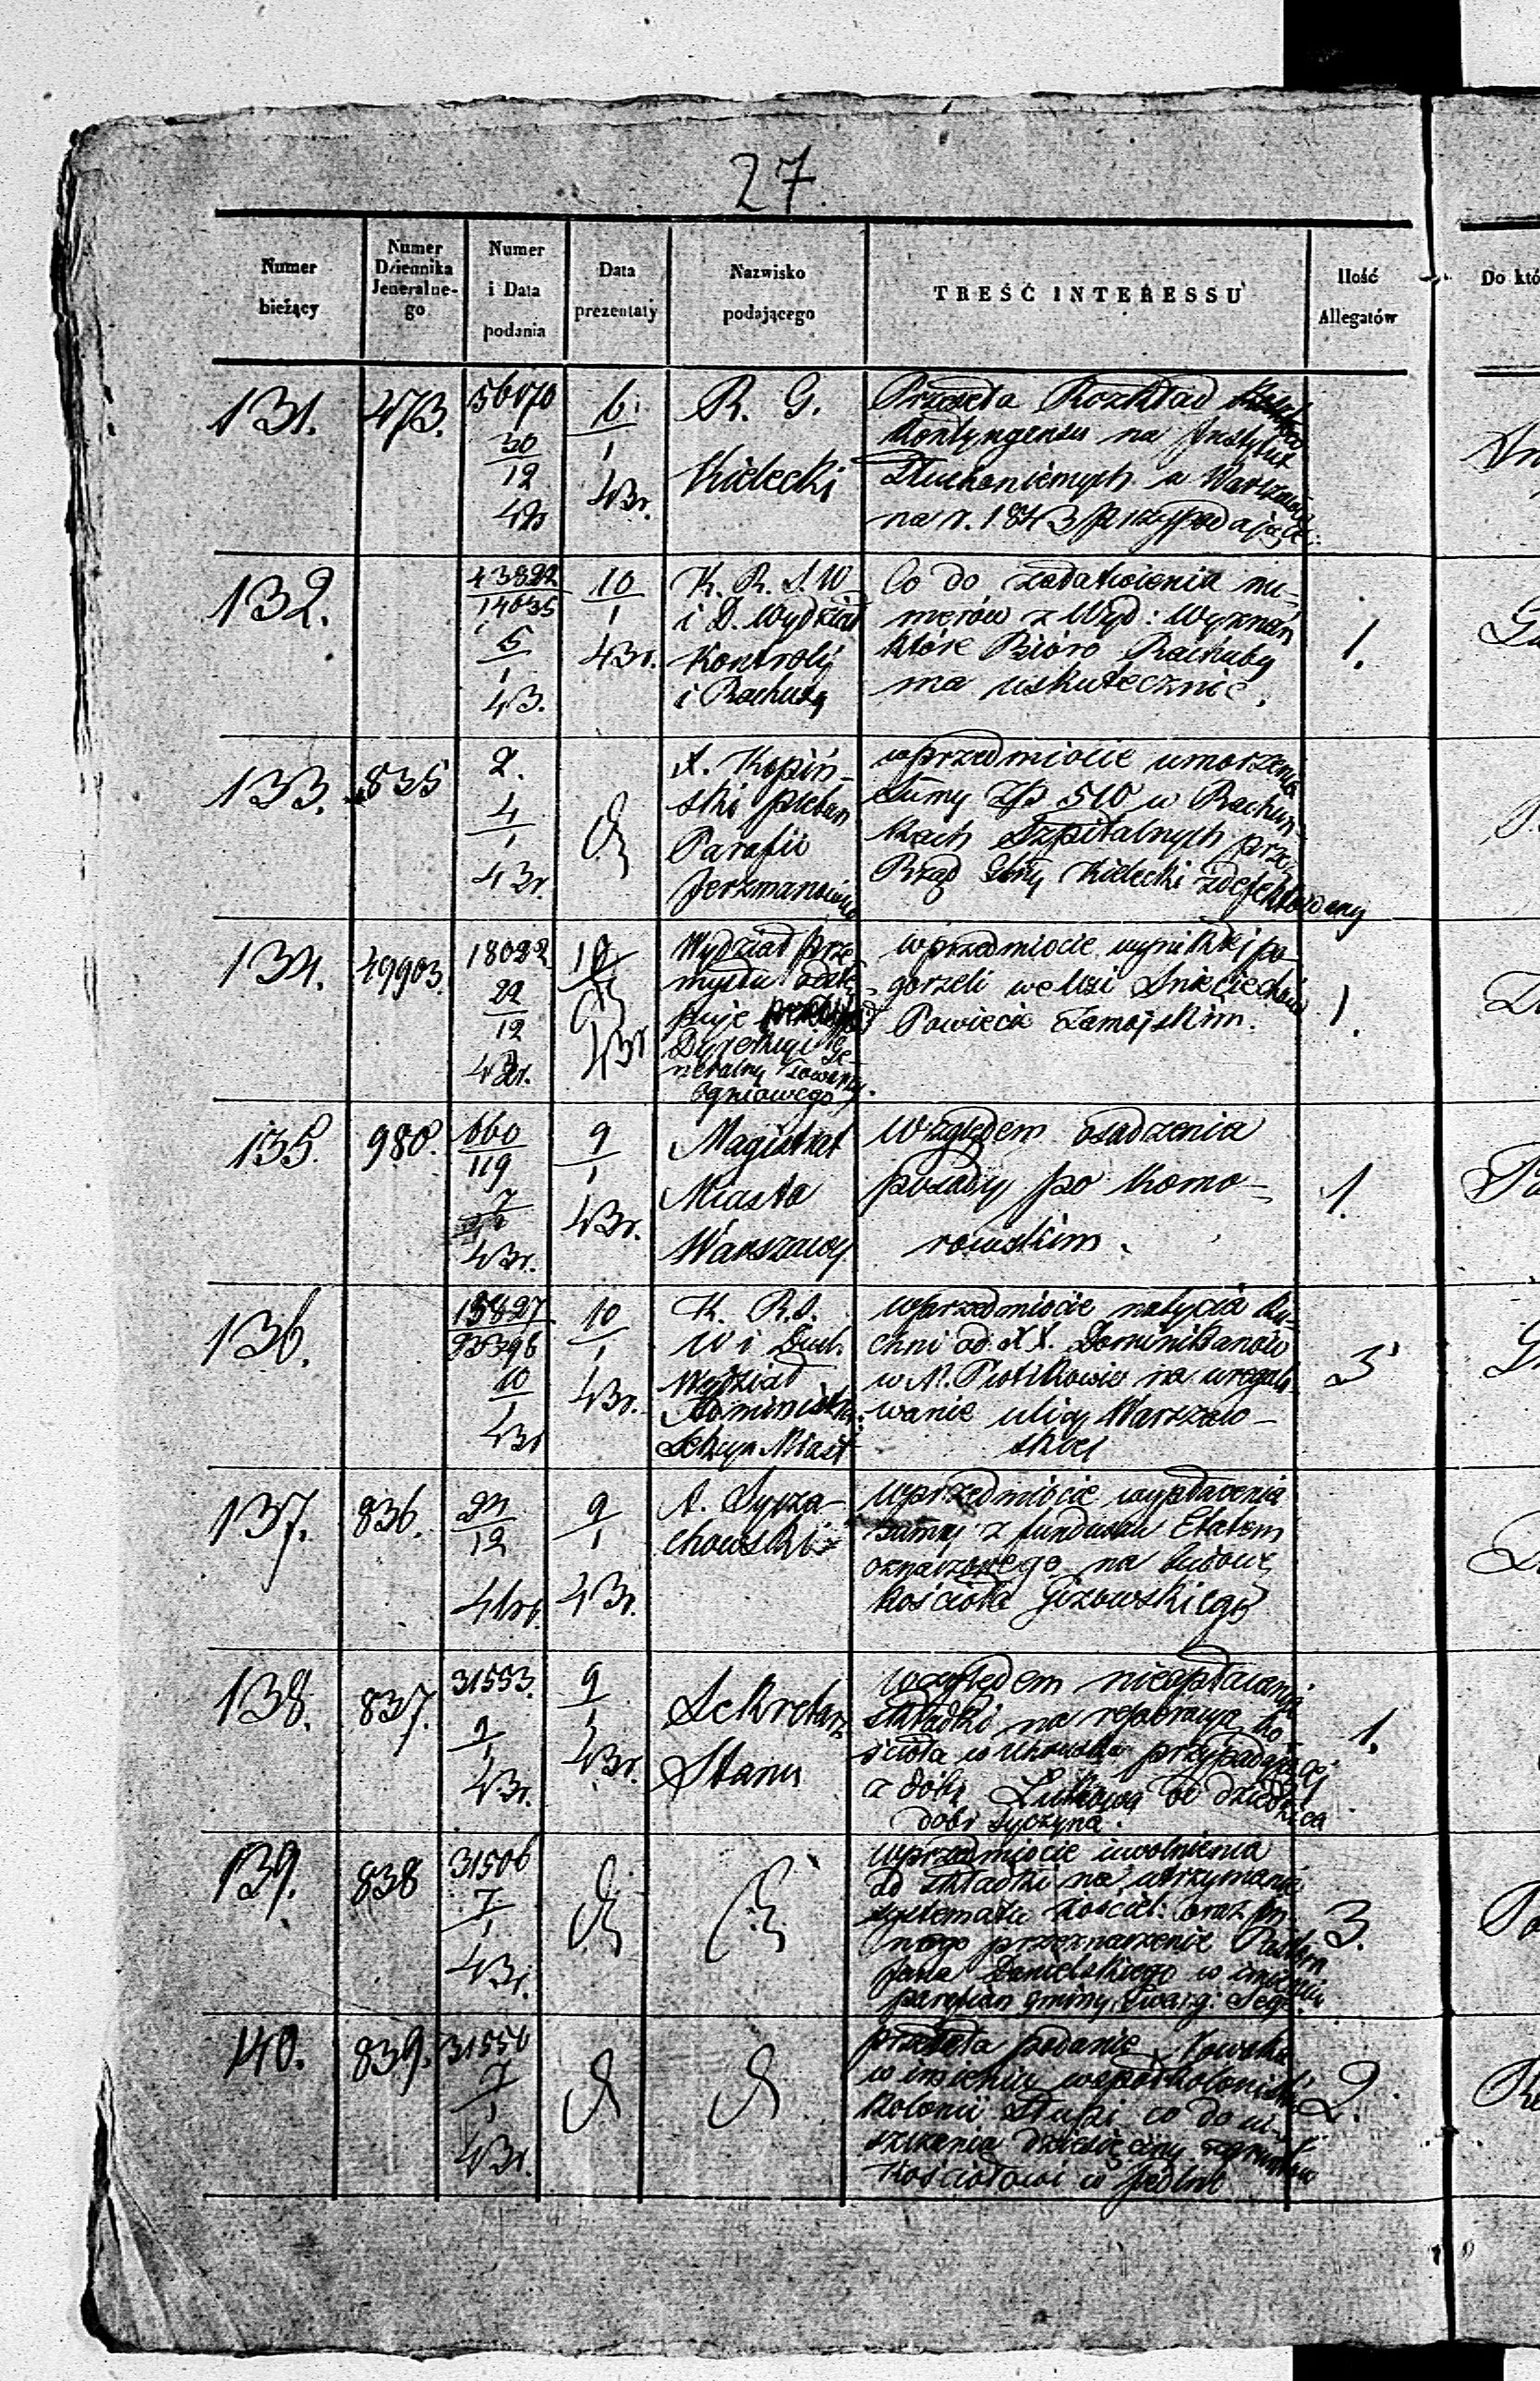 27.
Numer bieżący
Numer Dziennika Jeneralne- go
Numer i Data podania
Data prezentaty
Nazwisko podającego
TREŚĆ INTERESSU
Ilość Allegatów
Do któ
131. 473. 56170 30/12 42 6/1 43r.
R. G.
Kielecki
Przesyła Rozkład
Kontyngensu na Instytut
Głuchoniemych w Warszawie
na r. 1843 przypadające.
132. 43822/14635 5/1 43. 10/1 43r.
K. R. S. W.
i D. Wydział
Kontroly
i Rachuby
Co do załatwienia nu-
merów z Wyd: Wyznań
które Bióro Rachuby
ma uskutecznić.
1.
133. 835 2. 4/1 43r.
X. Kopiń-
ski pleban
Parafii
Jerzmanowice
w przedmiocie umorzenia
Summy Złp 510 w Rachun-
kach Szpitalnych przez
Rząd Gbny Kielecki zdefektowany
134. 49903. 18022 22/12 42r. 10/1 43r
Wydział prze-
mysłu odstę-
puje
Dyrekcyi Je-
neralny Towarzy.
Ogniowego
w przedmiocie wynikłej po-
gorzeli we Wsi
Powiecie Zamojskim.
1.
135. 980. 660/119 7/1 43r. 9/1 43r.
Magistrat
Miasta
Warszawy
Względem osadzenia
posady po Komo-
rowskim.
1.
136. 15827/23396 10/1 43r 10/1 43r.
K. R. S.
W i Duch.
Wydział
Administr.
Sekcya Miast
w przedmiocie nabycia Ku-
chni od XX. Dominikanów
w M. Piotrkowie na uregulo-
wanie ulicy Warszaw-
skiej
3
137. 836. 24/12 42r. 9/1 43r.
chowski
w przedmiocie wypłacenia
summy z funduszu Etatem
oznaczonego na budowę
Kościoła Gizowskiego
138. 837. 31553. 9/1 43r. 9/1 43r.
Sekretarz
Stanu
względem nieopłacania
składki na reparacyą Ko-
ścioła w przypadającej
z dóbr od dziedzica
dóbr Syczyna.
1.
139. 838 31506 7/1 43r.
w przedmiocie uwolnienia
od składki na utrzymanie
systematu Kościel: oraz in-
nego przeznaczenie Pastora
Jana Danielskiego w imieniu
parafian gminy Ewang:
3.
140. 839. 31550 7/1 43r.
przesyła podanie Nowaka
w imieniu współkolonistów
Kolonii Słupi co do ui-
szczania dziesięciny z gruntów
Kościołowi w Jedlni
2.